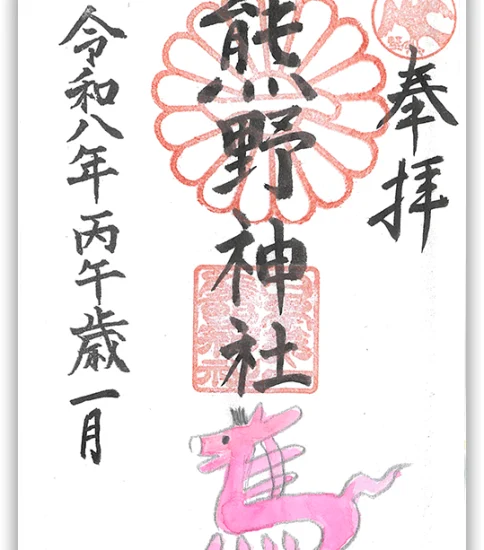 奉拝
熊野神社
令和八年丙午歳一月